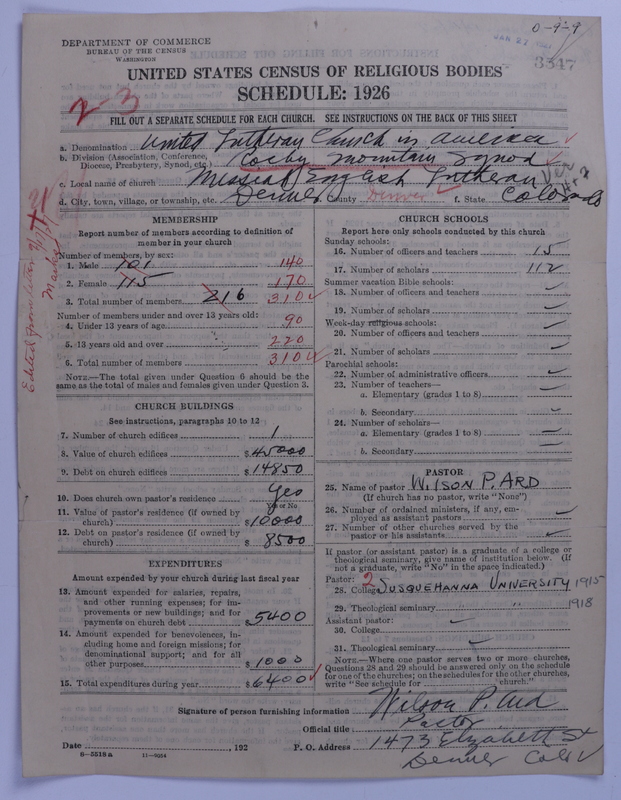 0-9-9
JAN 27 1927
3347
DEPARTMENT OF COMMERCE
BUREAU OF THE CENSUS
WASHINGTON
UNITED STATES CENSUS OF RELIGIOUS BODIES
SCHEDULE: 1926
2-3
FILL OUT A SEPARATE SCHEDULE FOR EACH CHURCH. SEE INSTRUCTIONS ON THE BACK OF THIS SHEET
a. Denomination United Lutheran Church in America
b. Division (Association, Conference, Diocese, Presbytery, Synod, etc.) Rocky Mountain Synod
c. Local name of church Messiah English Lutheran
d. City, town, village, or township, etc. Denver e. County Denver f. State Colorado
Edited from letter of
MEMBERSHIP
Report number of members according to definition of member in your church
Number of members, by sex:
1. Male 101 140
2. Female 115 170
3. Total number of members 216 310
Number of members under and over 13 years old:
4. Under 13 years of age 90
5. 13 years old and over 220
6. Total number of members 310
NOTE.—The total given under Question 6 should be the same as the total of males and females given under Question 3.
CHURCH BUILDINGS
See instructions, paragraphs 10 to 12
7. Number of church edifices 1
8. Value of church edifices $ 45000
9. Debt on church edifices $ 14850
10. Does church own pastor's residence Yes
Yes or No
11. Value of pastor's residence (if owned by church) $ 10000
12. Debt on pastor's residence (if owned by church) $ 8500
EXPENDITURES
Amount expended by your church during last fiscal year
13. Amount expended for salaries, repairs, and other running expenses; for improvements or new building; and for payments on church debt $ 5400
14. Amount expended for benevolences, including home and foreign missions; for denominational support; and for all other purposes $ 1000
15. Total expenditures during year $ 6400
CHURCH SCHOOLS
Report here only schools conducted by this church
Sunday schools:
16. Number of officers and teachers 15
17. Number of scholars 112
Summer vacation Bible schools:
18. Number of officers and teachers
19. Number of scholars
Week-day religious schools:
20. Number of officers and teachers
21. Number of scholars
Parochial schools:
22. Number of administrative officers
23. Number of teachers—
a. Elementary (grades 1 to 8)
b. Secondary
24. Number of scholars—
a. Elementary (grades 1 to 8)
b. Secondary
PASTOR
25. Name of pastor WILSON P. ARD
(If church has no pastor, write "None")
26. Number of ordained ministers, if any, employed as assistant pastors
27. Number of other churches served by the pastor or his assistants
If pastor (or assistant pastor) is a graduate of a college or theological seminary, give name of institution below. (If not a graduate, write "No" in the space indicated.)
Pastor: 2
28. College SUSQUEHANNA UNIVERSITY 1915
29. Theological seminary " 1918
Assistant pastor:
30. College
31. Theological seminary
NOTE.—Where one pastor serves two or more churches, Questions 28 and 29 should be answered only on the schedule for one of the churches; on the schedules for the other churches, write "See schedule for church."
Signature of person furnishing information Wilson P. Ard
Official title Pastor
Date , 192 P. O. Address 1473 Elizabeth St
Denver Colo
8-5518a 11-9064